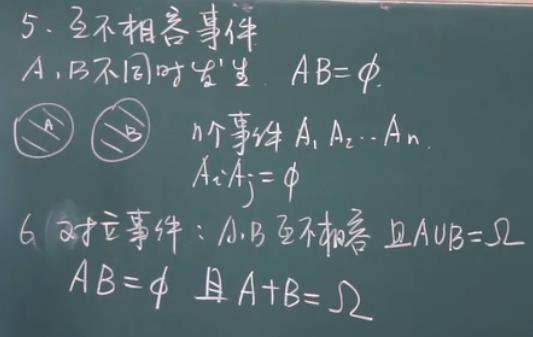 5. 互不相容事件
A,B不同时发生. AB=φ.
A B n个事件 A₁ A₂ ‥ Aₙ.
AᵢAⱼ=φ
6 对立事件: A,B互不相容 且A∪B=Ω
AB=φ 且 A+B=Ω